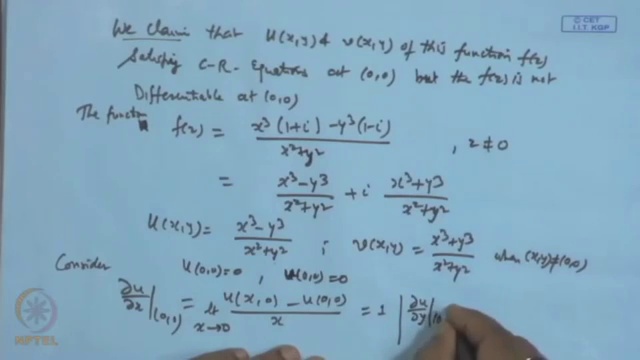 © CET
I.I.T. KGP
We claim that u(x,y) & v(x,y) of this function f(z)
Satisfying C-R. Equations at (0,0) but the f(z) is not
Differentiable at (0,0)
The functn f(z) = x³(1+i) - y³(1-i) / x²+y² , z ≠ 0
= x³-y³ / x²+y² + i x³+y³ / x²+y²
u(x,y) = x³-y³ / x²+y² ; v(x,y) = x³+y³ / x²+y² when (x,y)≠(0,0)
Consider u(0,0)=0 , v(0,0)=0
∂u/∂x|(0,0) = lt x→0 u(x,0) - u(0,0) / x = 1 | ∂u/∂y|(0
NPTEL